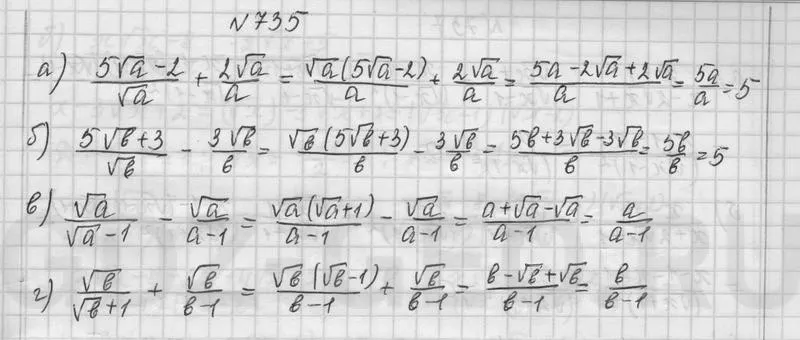 №735
а) (5√a − 2)/√a + 2√a/a = √a(5√a − 2)/a + 2√a/a = (5a − 2√a + 2√a)/a = 5a/a = 5
б) (5√b + 3)/√b − 3√b/b = √b(5√b + 3)/b − 3√b/b = (5b + 3√b − 3√b)/b = 5b/b = 5
в) √a/(√a − 1) − √a/(a − 1) = √a(√a + 1)/(a − 1) − √a/(a − 1) = (a + √a − √a)/(a − 1) = a/(a − 1)
г) √b/(√b + 1) + √b/(b − 1) = √b(√b − 1)/(b − 1) + √b/(b − 1) = (b − √b + √b)/(b − 1) = b/(b − 1)